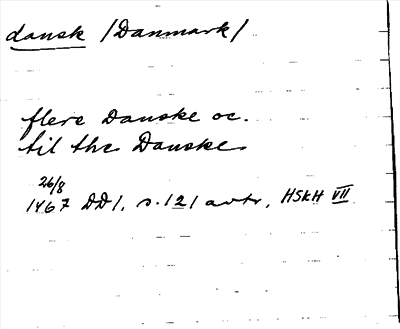 dansk /Danmark/
flere Danske oc.
til the Danske
26/8
1467 DD1, s.121 avtr. HSKH VII